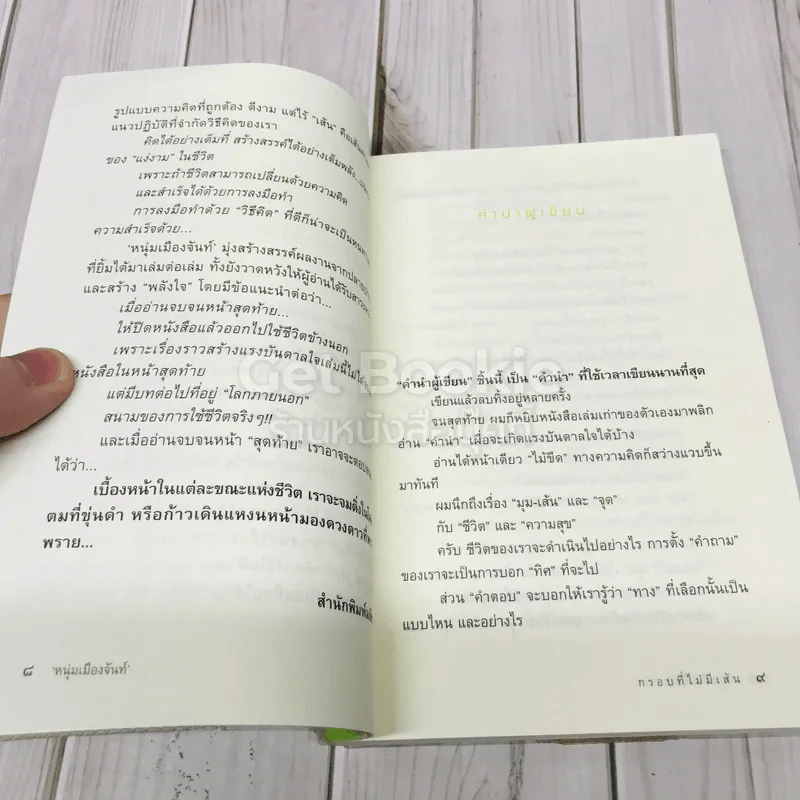 รูปแบบความคิดที่ถูกต้อง ดีงาม แต่ไร้ "เส้น" คือเส้น
แนวปฏิบัติที่จำกัดวิธีคิดของเรา
คิดได้อย่างเต็มที่ สร้างสรรค์ได้อย่างเต็มพลัง...
ของ "แง่งาม" ในชีวิต
เพราะถ้าชีวิตสามารถเปลี่ยนด้วยความคิด
และสำเร็จได้ด้วยการลงมือทำ
การลงมือทำด้วย "วิธีคิด" ที่ดีก็น่าจะเป็น
ความสำเร็จด้วย...
'หนุ่มเมืองจันท์' มุ่งสร้างสรรค์ผลงานจาก
ที่ยิ้มได้มาเล่มต่อเล่ม ทั้งยังวาดหวังให้ผู้อ่านได้รับ
และสร้าง "พลังใจ" โดยมีข้อแนะนำต่อว่า...
เมื่ออ่านจบจนหน้าสุดท้าย...
ให้ปิดหนังสือแล้วออกไปใช้ชีวิตข้างนอก
เพราะเรื่องราวสร้างแรงบันดาลใจเล่มนี้ไม่ได้
หนังสือในหน้าสุดท้าย
แต่มีบทต่อไปที่อยู่ "โลกภายนอก"
สนามของการใช้ชีวิตจริงๆ!!
และเมื่ออ่านจบจนหน้า "สุดท้าย" เราอาจจะ
ได้ว่า...
เบื้องหน้าในแต่ละขณะแห่งชีวิต เราจะจมดิ่ง
ตมที่ขุ่นดำ หรือก้าวเดินแหงนหน้ามองดวงดาว
พราย...
สำนักพิมพ์
๘ 'หนุ่มเมืองจันท์'
คำนำผู้เขียน
"คำนำผู้เขียน" ชิ้นนี้ เป็น "คำนำ" ที่ใช้เวลาเขียนนานที่สุด
เขียนแล้วลบทิ้งอยู่หลายครั้ง
จนสุดท้าย ผมก็หยิบหนังสือเล่มเก่าของตัวเองมาพลิก
อ่าน "คำนำ" เผื่อจะเกิดแรงบันดาลใจได้บ้าง
อ่านได้หน้าเดียว "ไม้ขีด" ทางความคิดก็สว่างแวบขึ้น
มาทันที
ผมนึกถึงเรื่อง "มุม-เส้น" และ "จุด"
กับ "ชีวิต" และ "ความสุข"
ครับ ชีวิตของเราจะดำเนินไปอย่างไร การตั้ง "คำถาม"
ของเราจะเป็นการบอก "ทิศ" ที่จะไป
ส่วน "คำตอบ" จะบอกให้เรารู้ว่า "ทาง" ที่เลือกนั้นเป็น
แบบไหน และอย่างไร
กรอบที่ไม่มีเส้น ๙
Get Bookie
ร้านหนังสือ